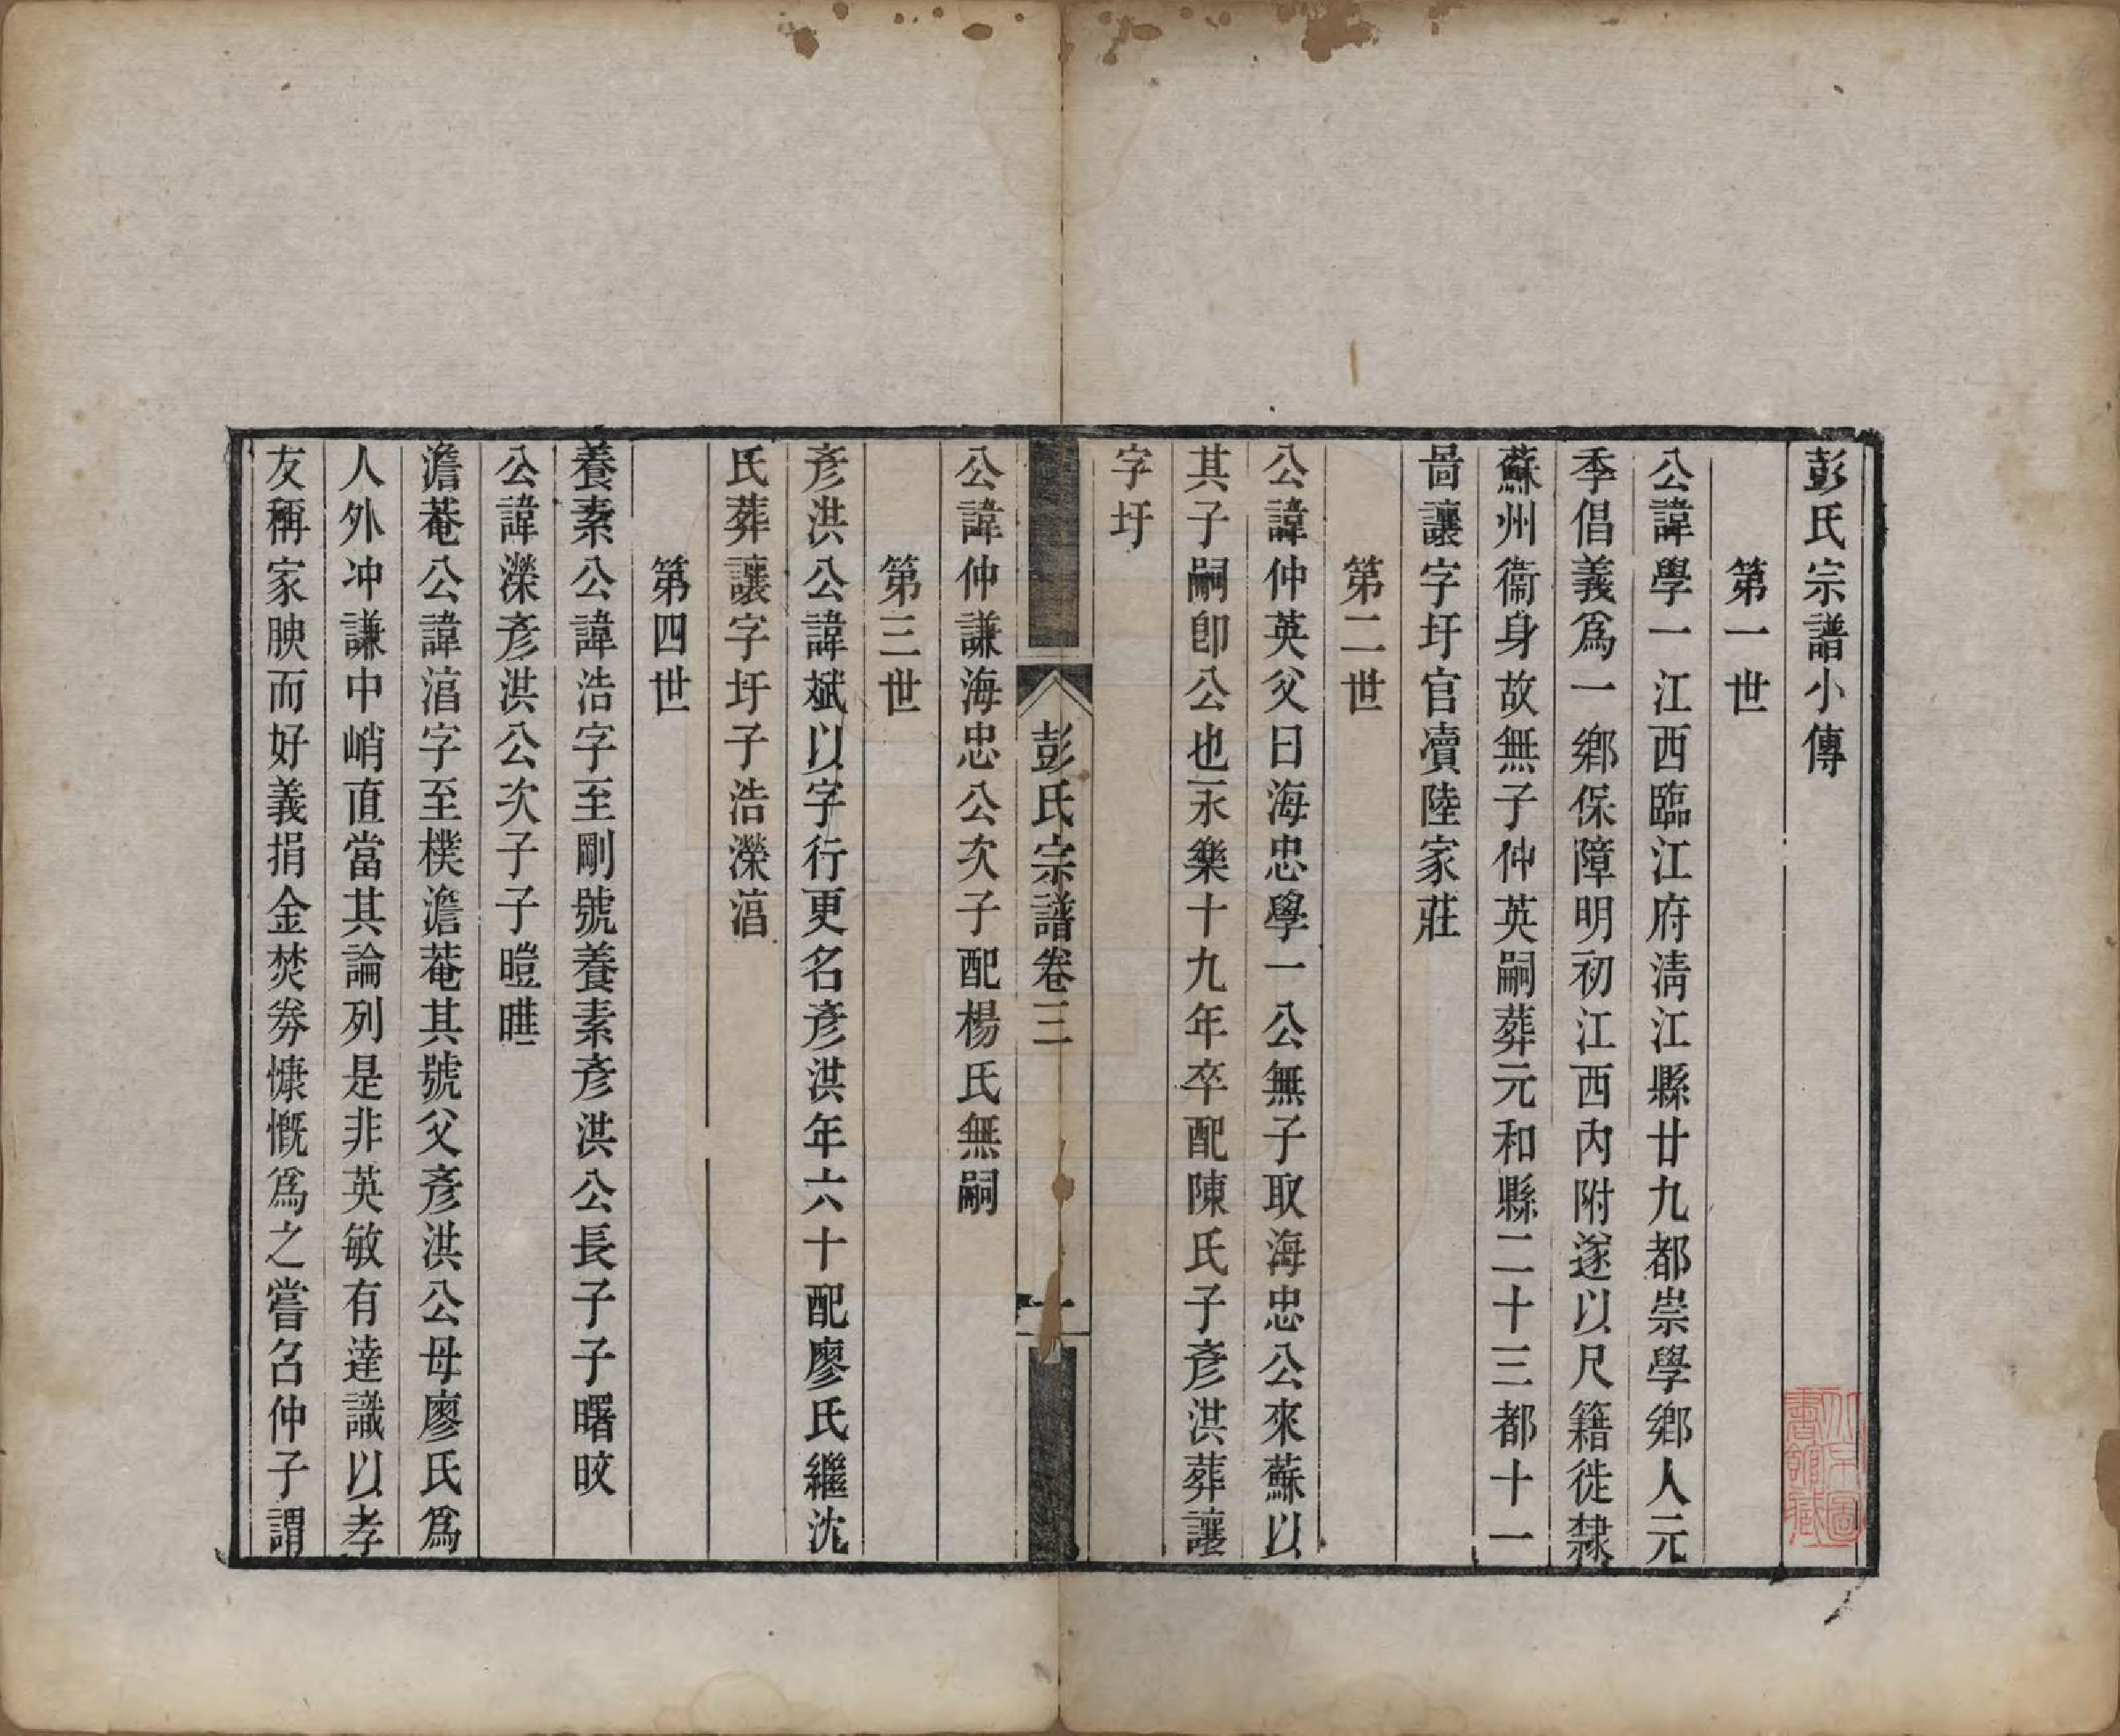 彭氏宗譜小傳
第一世
公諱學一江西臨江府淸江縣廿九都崇學鄉人元
季倡義爲一鄉保障明初江西內附遂以尺籍徙隸
蘇州衞身故無子仲英嗣葬元和縣二十三都十一
啚讓字圩官瀆陸家莊
第二世
公諱仲英父曰海忠學一公無子取海忠公來蘇以
其子嗣卽公也永樂十九年卒配陳氏子彥洪葬讓
字圩
彭氏宗譜卷三
一
公諱仲謙海忠公次子配楊氏無嗣
第三世
彥洪公諱斌以字行更名彥洪年六十配廖氏繼沈
氏葬讓字圩子浩濚淐
第四世
養素公諱浩字至剛號養素彥洪公長子子曙晈
公諱濚彥洪公次子子暟㬢
澹菴公諱淐字至樸澹菴其號父彥洪公母廖氏爲
人外冲謙中峭直當其論列是非英敏有達識以孝
友稱家腴而好義捐金焚劵慷慨爲之嘗名仲子謂